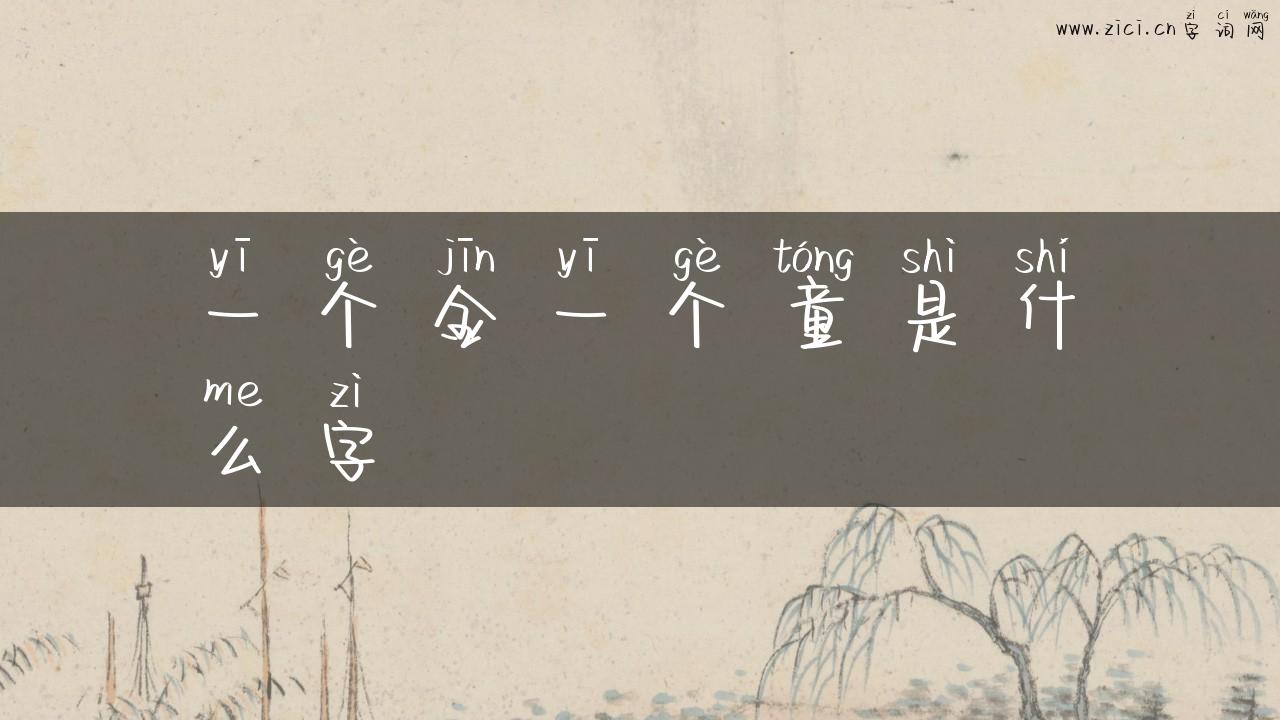 www.zici.cn zì cí wǎng
字词网
yī gè jīn yī gè tóng shì shí
一个金一个童是什
me zì
么字